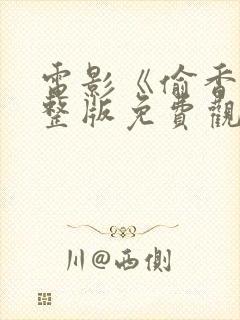 電影《偷香
整版免費觀
川@西側